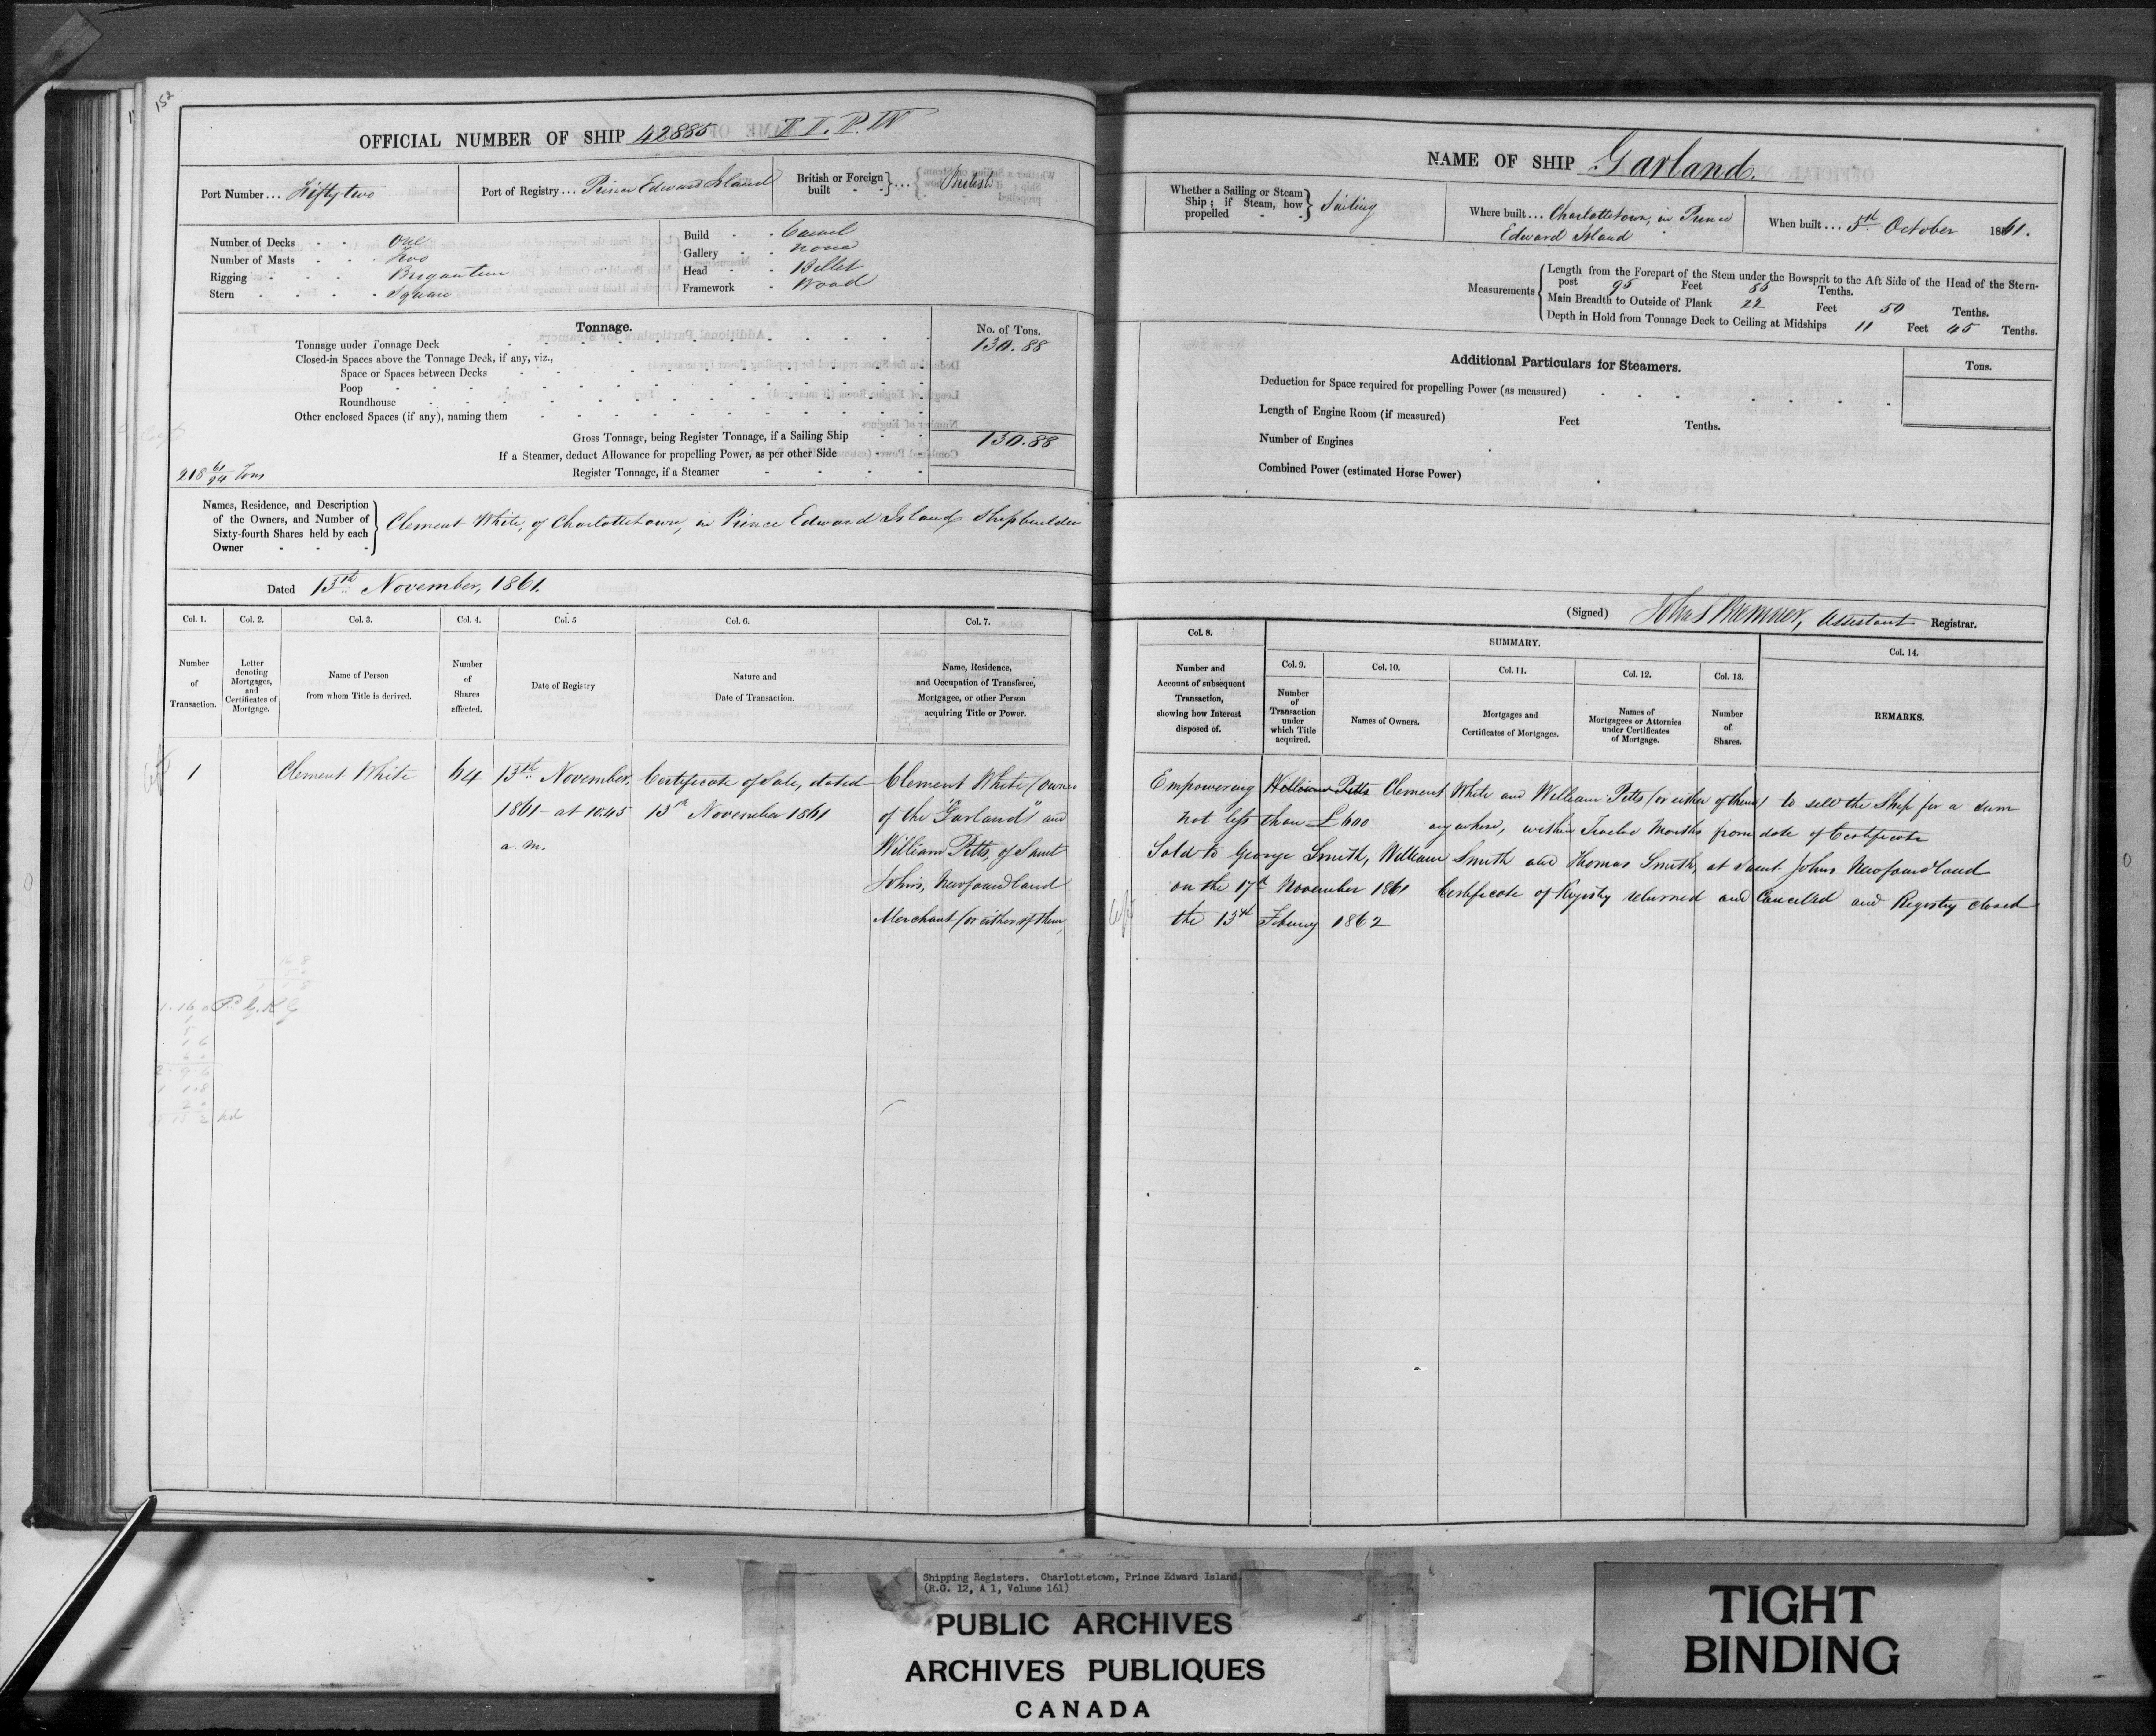 152
OFFICIAL NUMBER OF SHIP 42885
Port Number... Fifty two
Port of Registry... Prince Edward Island
British or Foreign built ... British
Number of Decks - - One
Number of Masts - - Two
Rigging - - - Brigantine
Stern - - - Square
Build - - Carvel
Gallery - - None
Head - - Billet
Framework - Wood
Tonnage.
No. of Tons.
Tonnage under Tonnage Deck 130.88
Closed-in Spaces above the Tonnage Deck, if any, viz.,
Space or Spaces between Decks
Poop
Roundhouse
Other enclosed Spaces (if any), naming them
Gross Tonnage, being Register Tonnage, if a Sailing Ship 130.88
If a Steamer, deduct Allowance for propelling Power, as per other Side
Register Tonnage, if a Steamer
218 61/94 Tons
Names, Residence, and Description of the Owners, and Number of Sixty-fourth Shares held by each Owner
Clement White, of Charlottetown, in Prince Edward Island Shipbuilder
Dated 13th November, 1861.
Col. 1. Col. 2. Col. 3. Col. 4. Col. 5 Col. 6. Col. 7.
Number of Transaction.
Letter denoting Mortgages, and Certificates of Mortgage.
Name of Person from whom Title is derived.
Number of Shares affected.
Date of Registry
Nature and Date of Transaction.
Name, Residence, and Occupation of Transferee, Mortgagee, or other Person acquiring Title or Power.
1 Clement White 64
13th November,
1861 - at 10.45
a.m.
Certificate of Sale, dated
13th November 1861
Clement White (owner
of the "Garland") and
William Pitts, of Saint
Johns, Newfoundland
Merchant (or either of them)
NAME OF SHIP Garland.
Whether a Sailing or Steam Ship; if Steam, how propelled - - Sailing
Where built... Charlottetown, in Prince
Edward Island
When built... 5th October 1861.
Measurements
Length from the Forepart of the Stem under the Bowsprit to the Aft Side of the Head of the Stern-
post 95 Feet 85 Tenths.
Main Breadth to Outside of Plank 22 Feet 50 Tenths.
Depth in Hold from Tonnage Deck to Ceiling at Midships 11 Feet 45 Tenths.
Additional Particulars for Steamers.
Tons.
Deduction for Space required for propelling Power (as measured)
Length of Engine Room (if measured) Feet Tenths.
Number of Engines
Combined Power (estimated Horse Power)
(Signed) Assistant Registrar.
Col. 8.
SUMMARY.
Col. 9. Col. 10. Col. 11. Col. 12. Col. 13. Col. 14.
Number and Account of subsequent Transaction, showing how Interest disposed of.
Number of Transaction under which Title acquired.
Names of Owners.
Mortgages and Certificates of Mortgages.
Names of Mortgagees or Attornies under Certificates of Mortgage.
Number of Shares.
REMARKS.
Empowering William Pitts Clement White and William Pitts (or either of them) to sell the Ship for a sum
not less than £600 anywhere, within Twelve Months from date of Certificate
Sold to George Smith, William Smith and Thomas Smith, at Saint Johns Newfoundland
on the 17th November 1861 Certificate of Registry returned and Cancelled and Registry closed
the 13th Febuary 1862
Shipping Registers. Charlottetown, Prince Edward Island.
(R.G. 12, A 1, Volume 161)
PUBLIC ARCHIVES
ARCHIVES PUBLIQUES
CANADA
TIGHT
BINDING